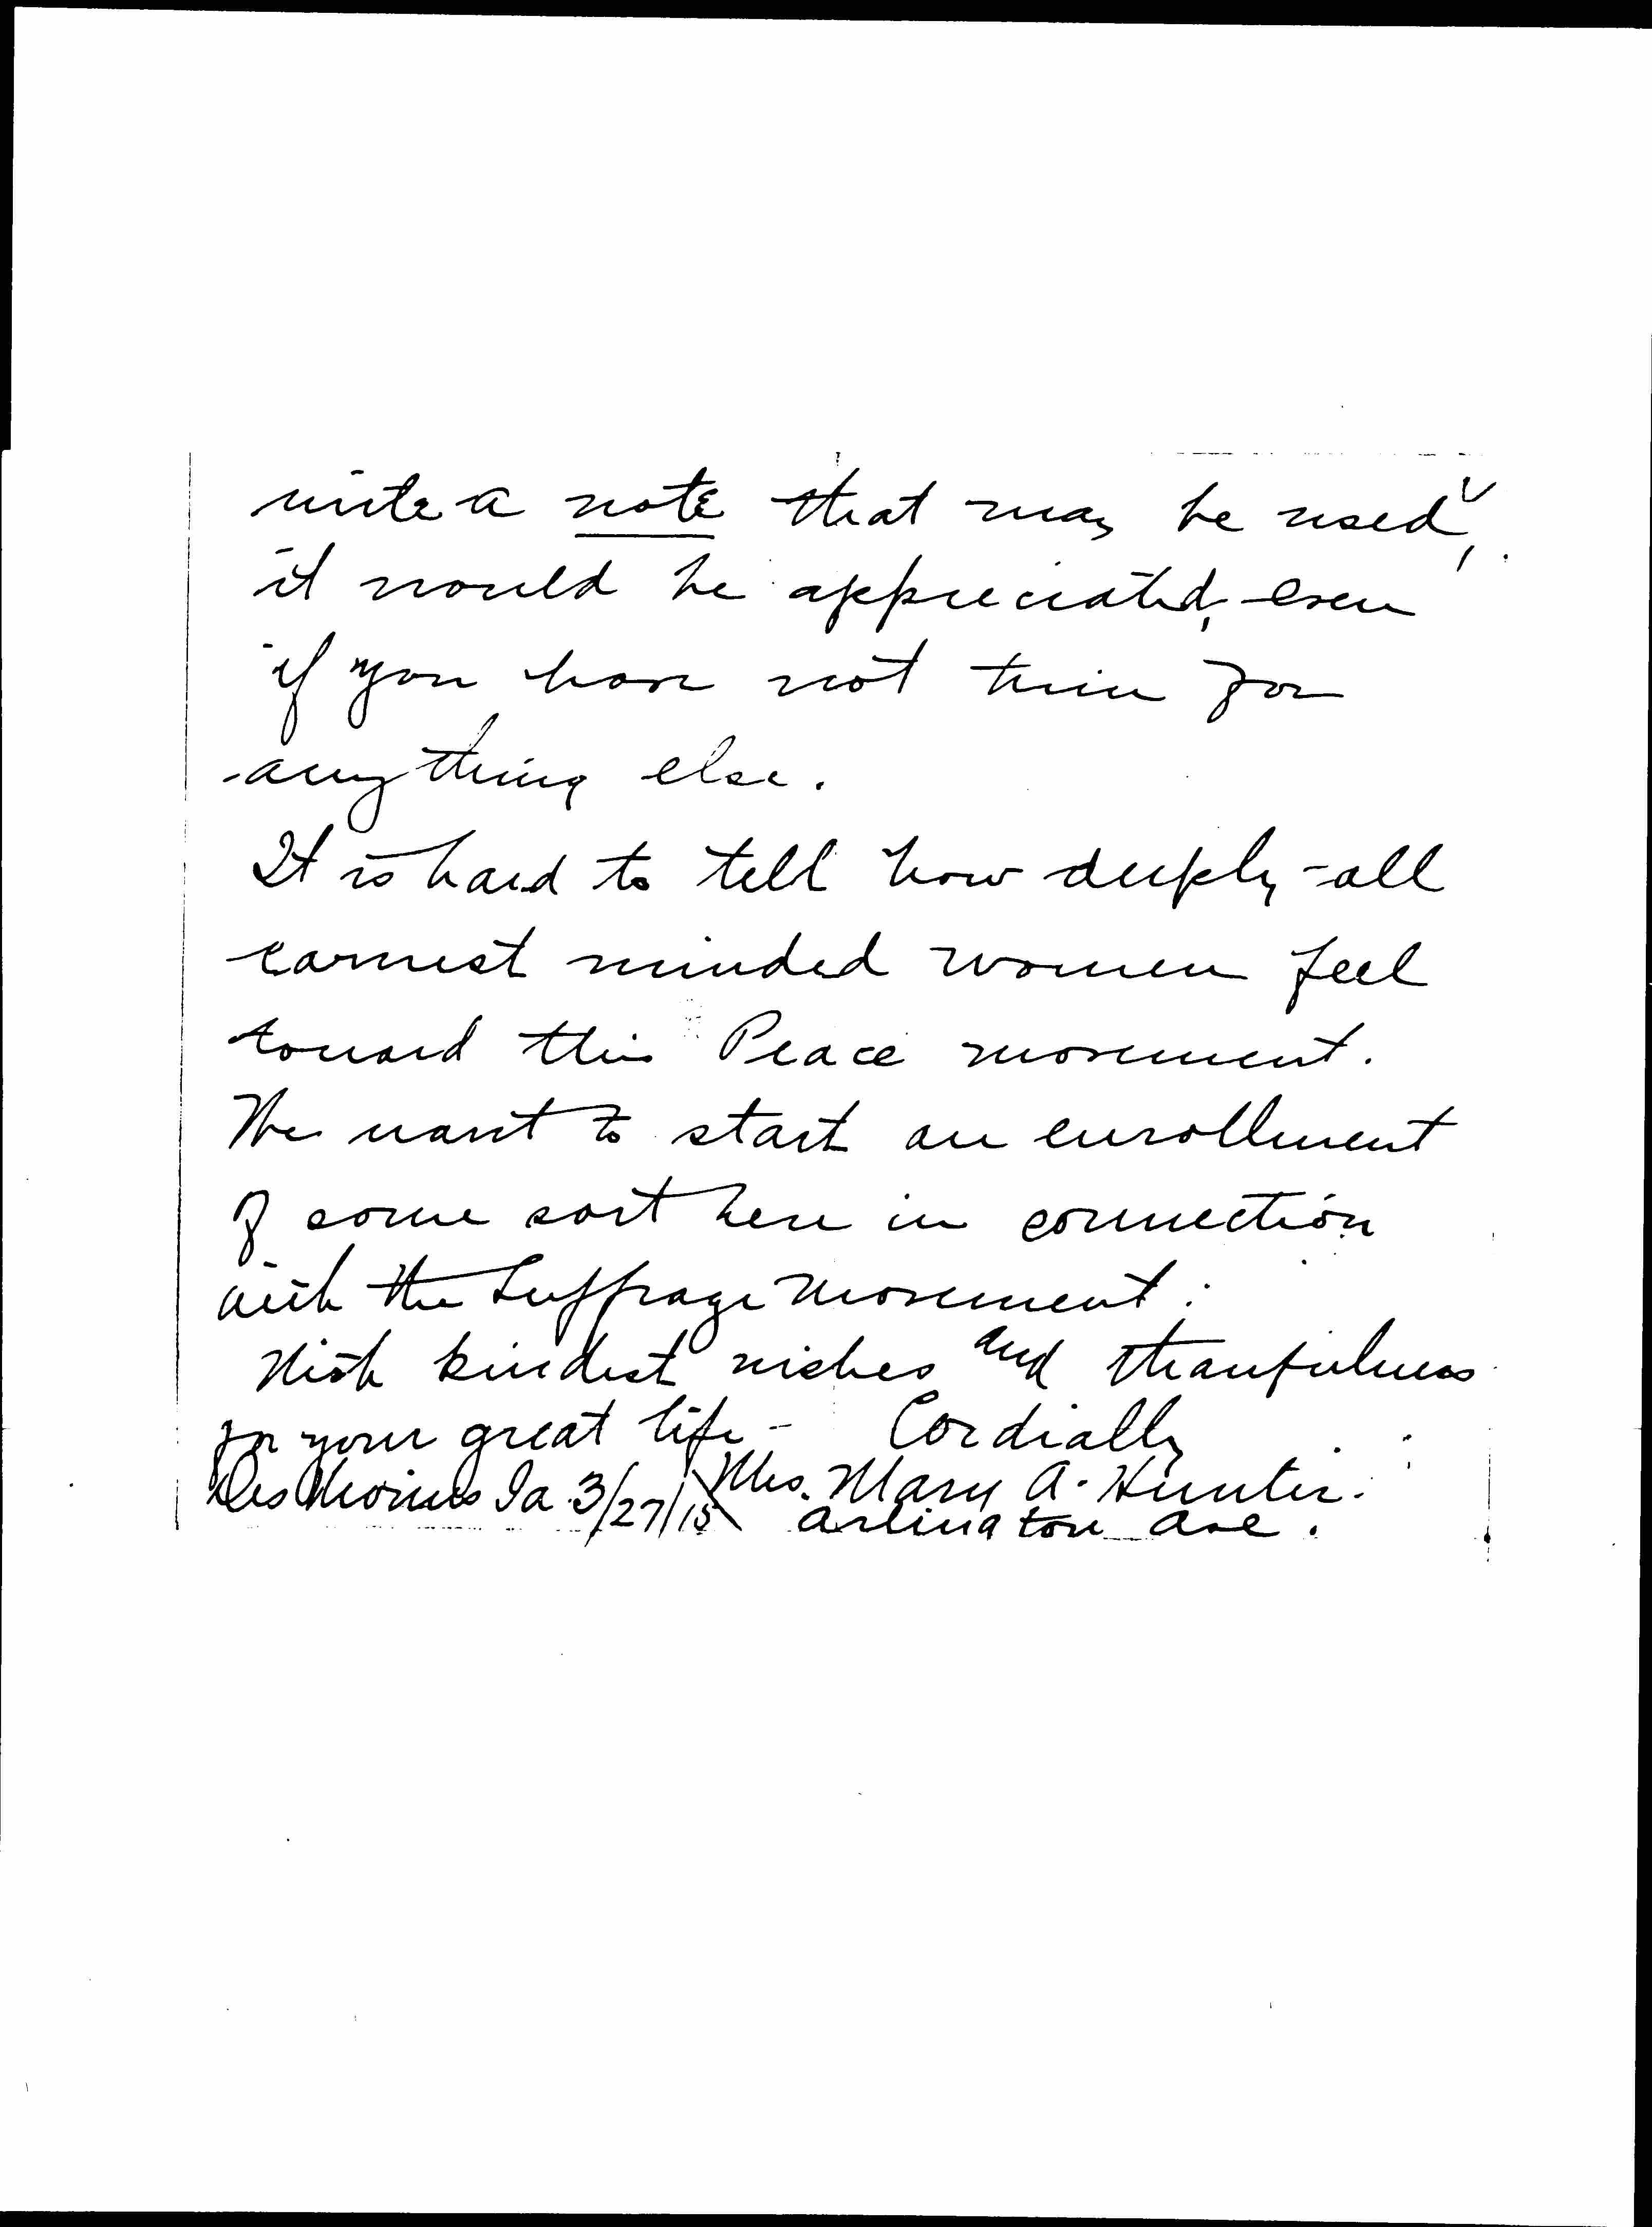 write a note that may be used,
it would be appreciated, even
if you have not time for
anything else.
It is hard to tell how deeply all
earnest minded women feel
toward this Peace movement.
We want to start an enrollment
of some sort here in connection
with the Suffrage movement.
With kindest wishes and thankfulness
for your great life - Cordially
Des Moines Ia. 3/27/15 Mrs. Mary A. Hunter.
Arlington Ave.